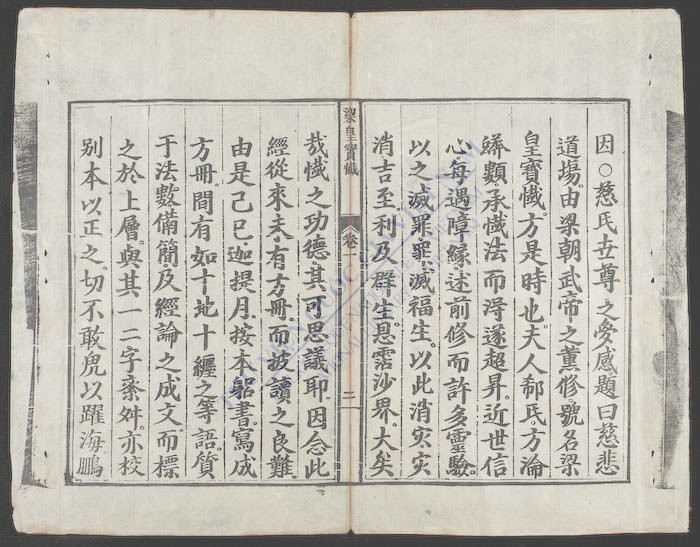 因○慈氏世尊之夢感題曰慈悲
道場由梁朝武帝之薰修號名梁
皇寶懺方是時也夫人郗氏方淪
蟒類承懺法而淂遂超昇近世信
心每遇障緣述前修而許多靈驗
以之滅罪罪滅福生以此消灾灾
消吉至利及群生恩霑沙界大矣
梁皇寶懺
卷一
二
哉懺之功德其可思議耶因念此
經從來未有方冊而披讀之良難
由是己巳迦提月按本躬書寫成
方冊間有如十地十纏之等語質
于法數備簡及經論之成文而標
之於上層與其一二字紊舛亦校
別本以正之切不敢虎以躍海鵬